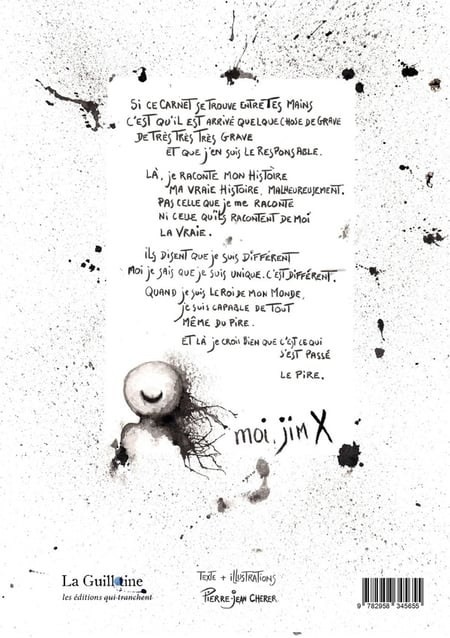 Si ce carnet se trouve entre tes mains
c'est qu'il est arrivé quelque chose de grave
de très très très grave
et que j'en suis le responsable.
Là, je raconte mon histoire
ma vraie histoire, malheureusement.
pas celle que je me raconte
ni celle qu'ils racontent de moi
la vraie.
ils disent que je suis différent
moi je sais que je suis unique. c'est différent.
Quand je suis le roi de mon monde,
je suis capable de tout
même du pire.
et là je crois bien que c'est ce qui
s'est passé
le pire.
moi, jim X
La Guillotine
les éditions qui tranchent
Texte + illustrations
Pierre-Jean Cherer
9 782958 345655